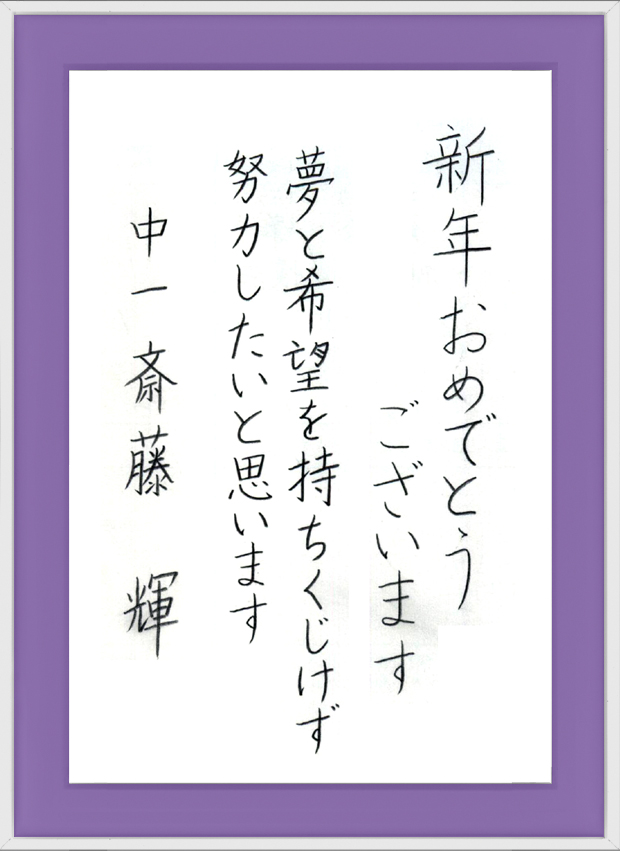 新年おめでとう
ございます
夢と希望を持ちくじけず
努力したいと思います
中一 斎藤 輝